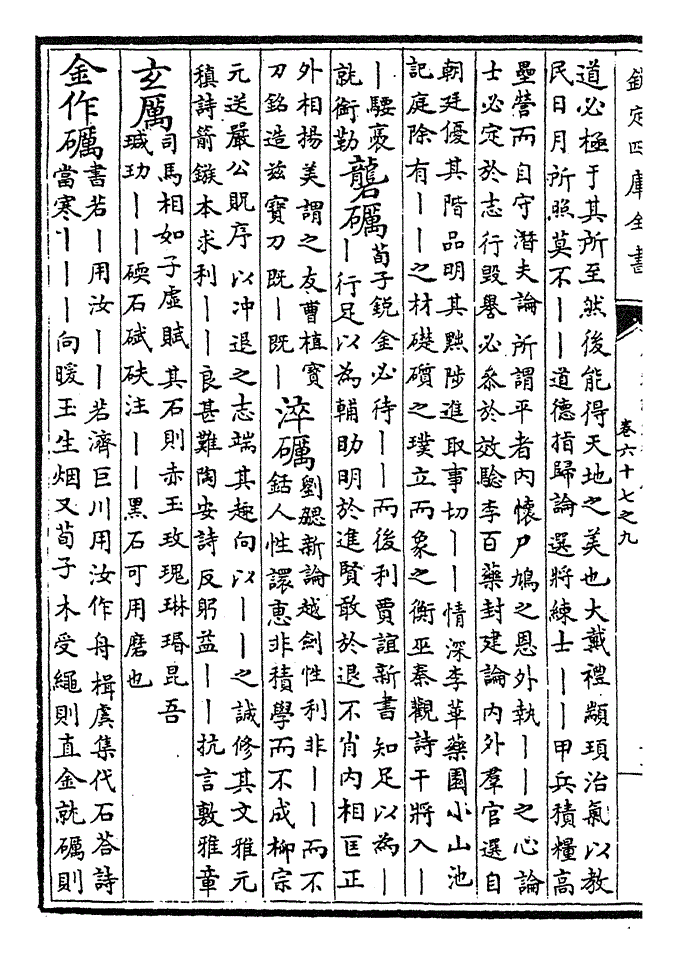 欽定四庫全書
卷六十七之九
道必極于其所至然後能得天地之美也大戴禮顓頊治氣以教
民日月所照莫不丨丨道德指歸論選將練士丨丨甲兵積糧高
壘營而自守潛夫論所謂平者内懷尸鳩之恩外執丨丨之心論
士必定於志行毁譽必叅於效驗李百藥封建論内外羣官選自
朝廷優其階品明其黜陟進取事切丨丨情深李華藥園小山池
記庭除有丨丨之材礎礩之璞立而象之衡巫秦觀詩干將入丨
丨騕褭
就銜勒
礱礪
荀子鋭金必待丨丨而後利賈誼新書知足以為丨
丨行足以為輔助明於進賢敢於退不肖内相匡正
外相揚美謂之友曹植寳
刀銘造兹寳刀既丨既丨
淬礪
劉勰新論越劍性利非丨丨而不
銛人性譞惠非積學而不成柳宗
元送嚴公貺序以冲退之志端其趣向以丨丨之誠修其文雅元
稹詩箭鏃本求利丨丨良甚難陶安詩反躬益丨丨抗言敷雅章
玄厲
司馬相如子虛賦其石則赤玉玫瑰琳瑉昆吾
瑊玏丨丨碝石碔砆注丨丨黑石可用磨也
金作礪
書若丨用汝丨丨若濟巨川用汝作舟楫虞集代石荅詩
當寒丨丨丨向暖玉生烟又荀子木受繩則直金就礪則